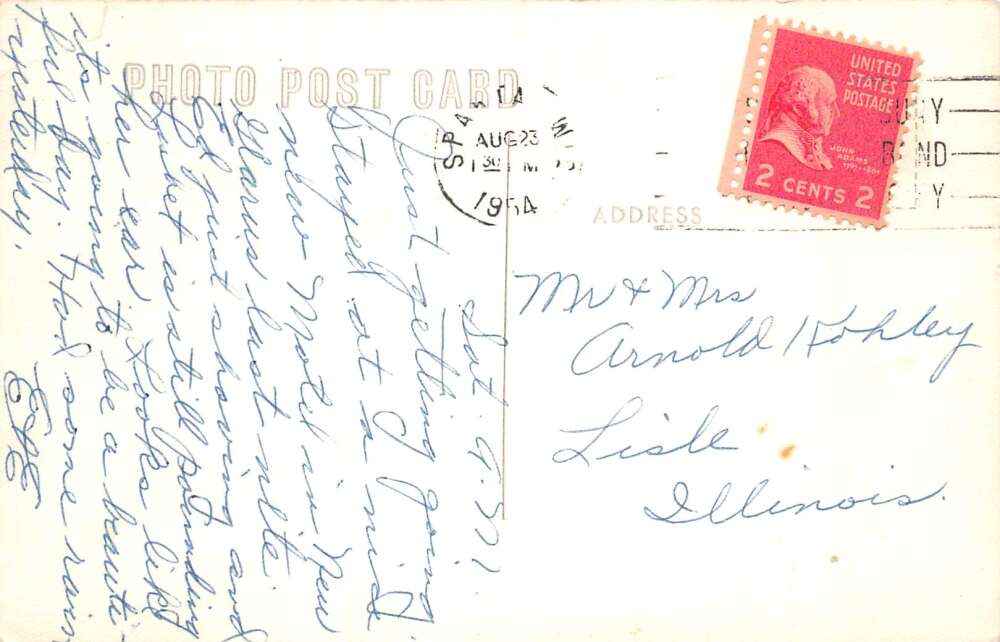 PHOTO POST CARD
SPARTA WIS
AUG 23
1 30 PM
1954
UNITED
STATES
POSTAGE
JOHN
ADAMS
1797-1801
2 CENTS 2
BOND
ADDRESS
Sat. A.M.
Just getting going
Stayed at a nice
new Motel in New
Glarus last nite.
Ed just shaving and
Sweet is still pounding
her ear. Looks like
its going to be a beauti-
ful day. Had some rain
yesterday.
E & E
Mr & Mrs
Arnold Kohley
Lisle
Illinois.